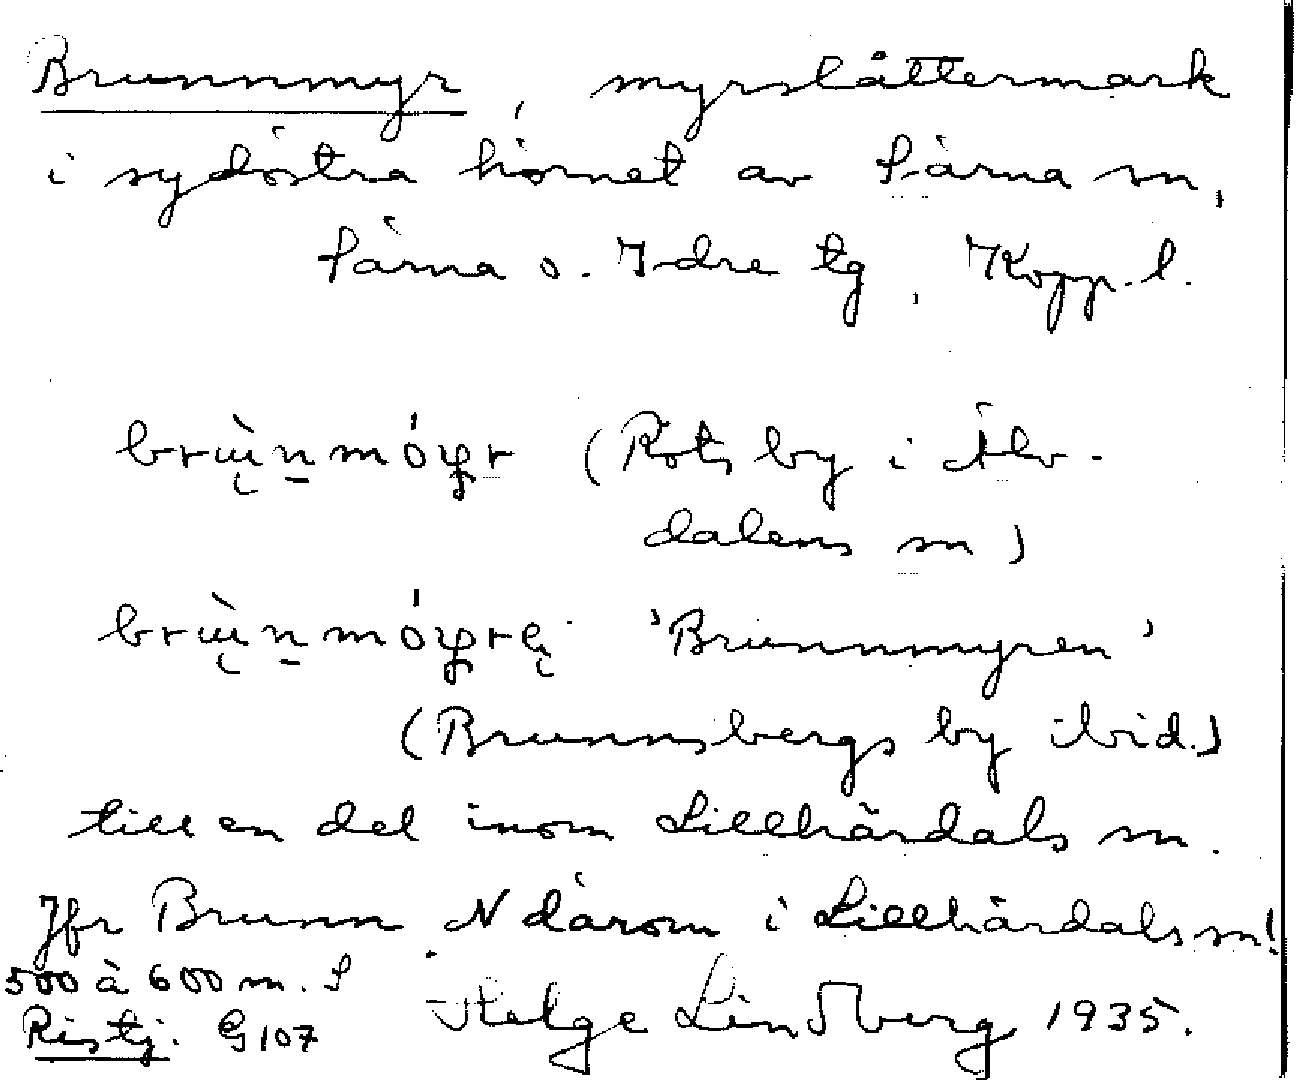 Brunnmyr, myrslåttermark
i sydöstra hörnet av Särna sn,
Särna o. Idre tg, Kopp. l.
brùn̠móyr (Rots by i Älv-
dalens sn)
brùn̠móyrę 'Brunnmyren'
(Brunnsbergs by ibid.)
till en del inom Lillhärdals sn.
Jfr Brunn N därom i Lillhärdals sn!
500 à 600 m. S
Ristj. G107 Helge Lindberg 1935.